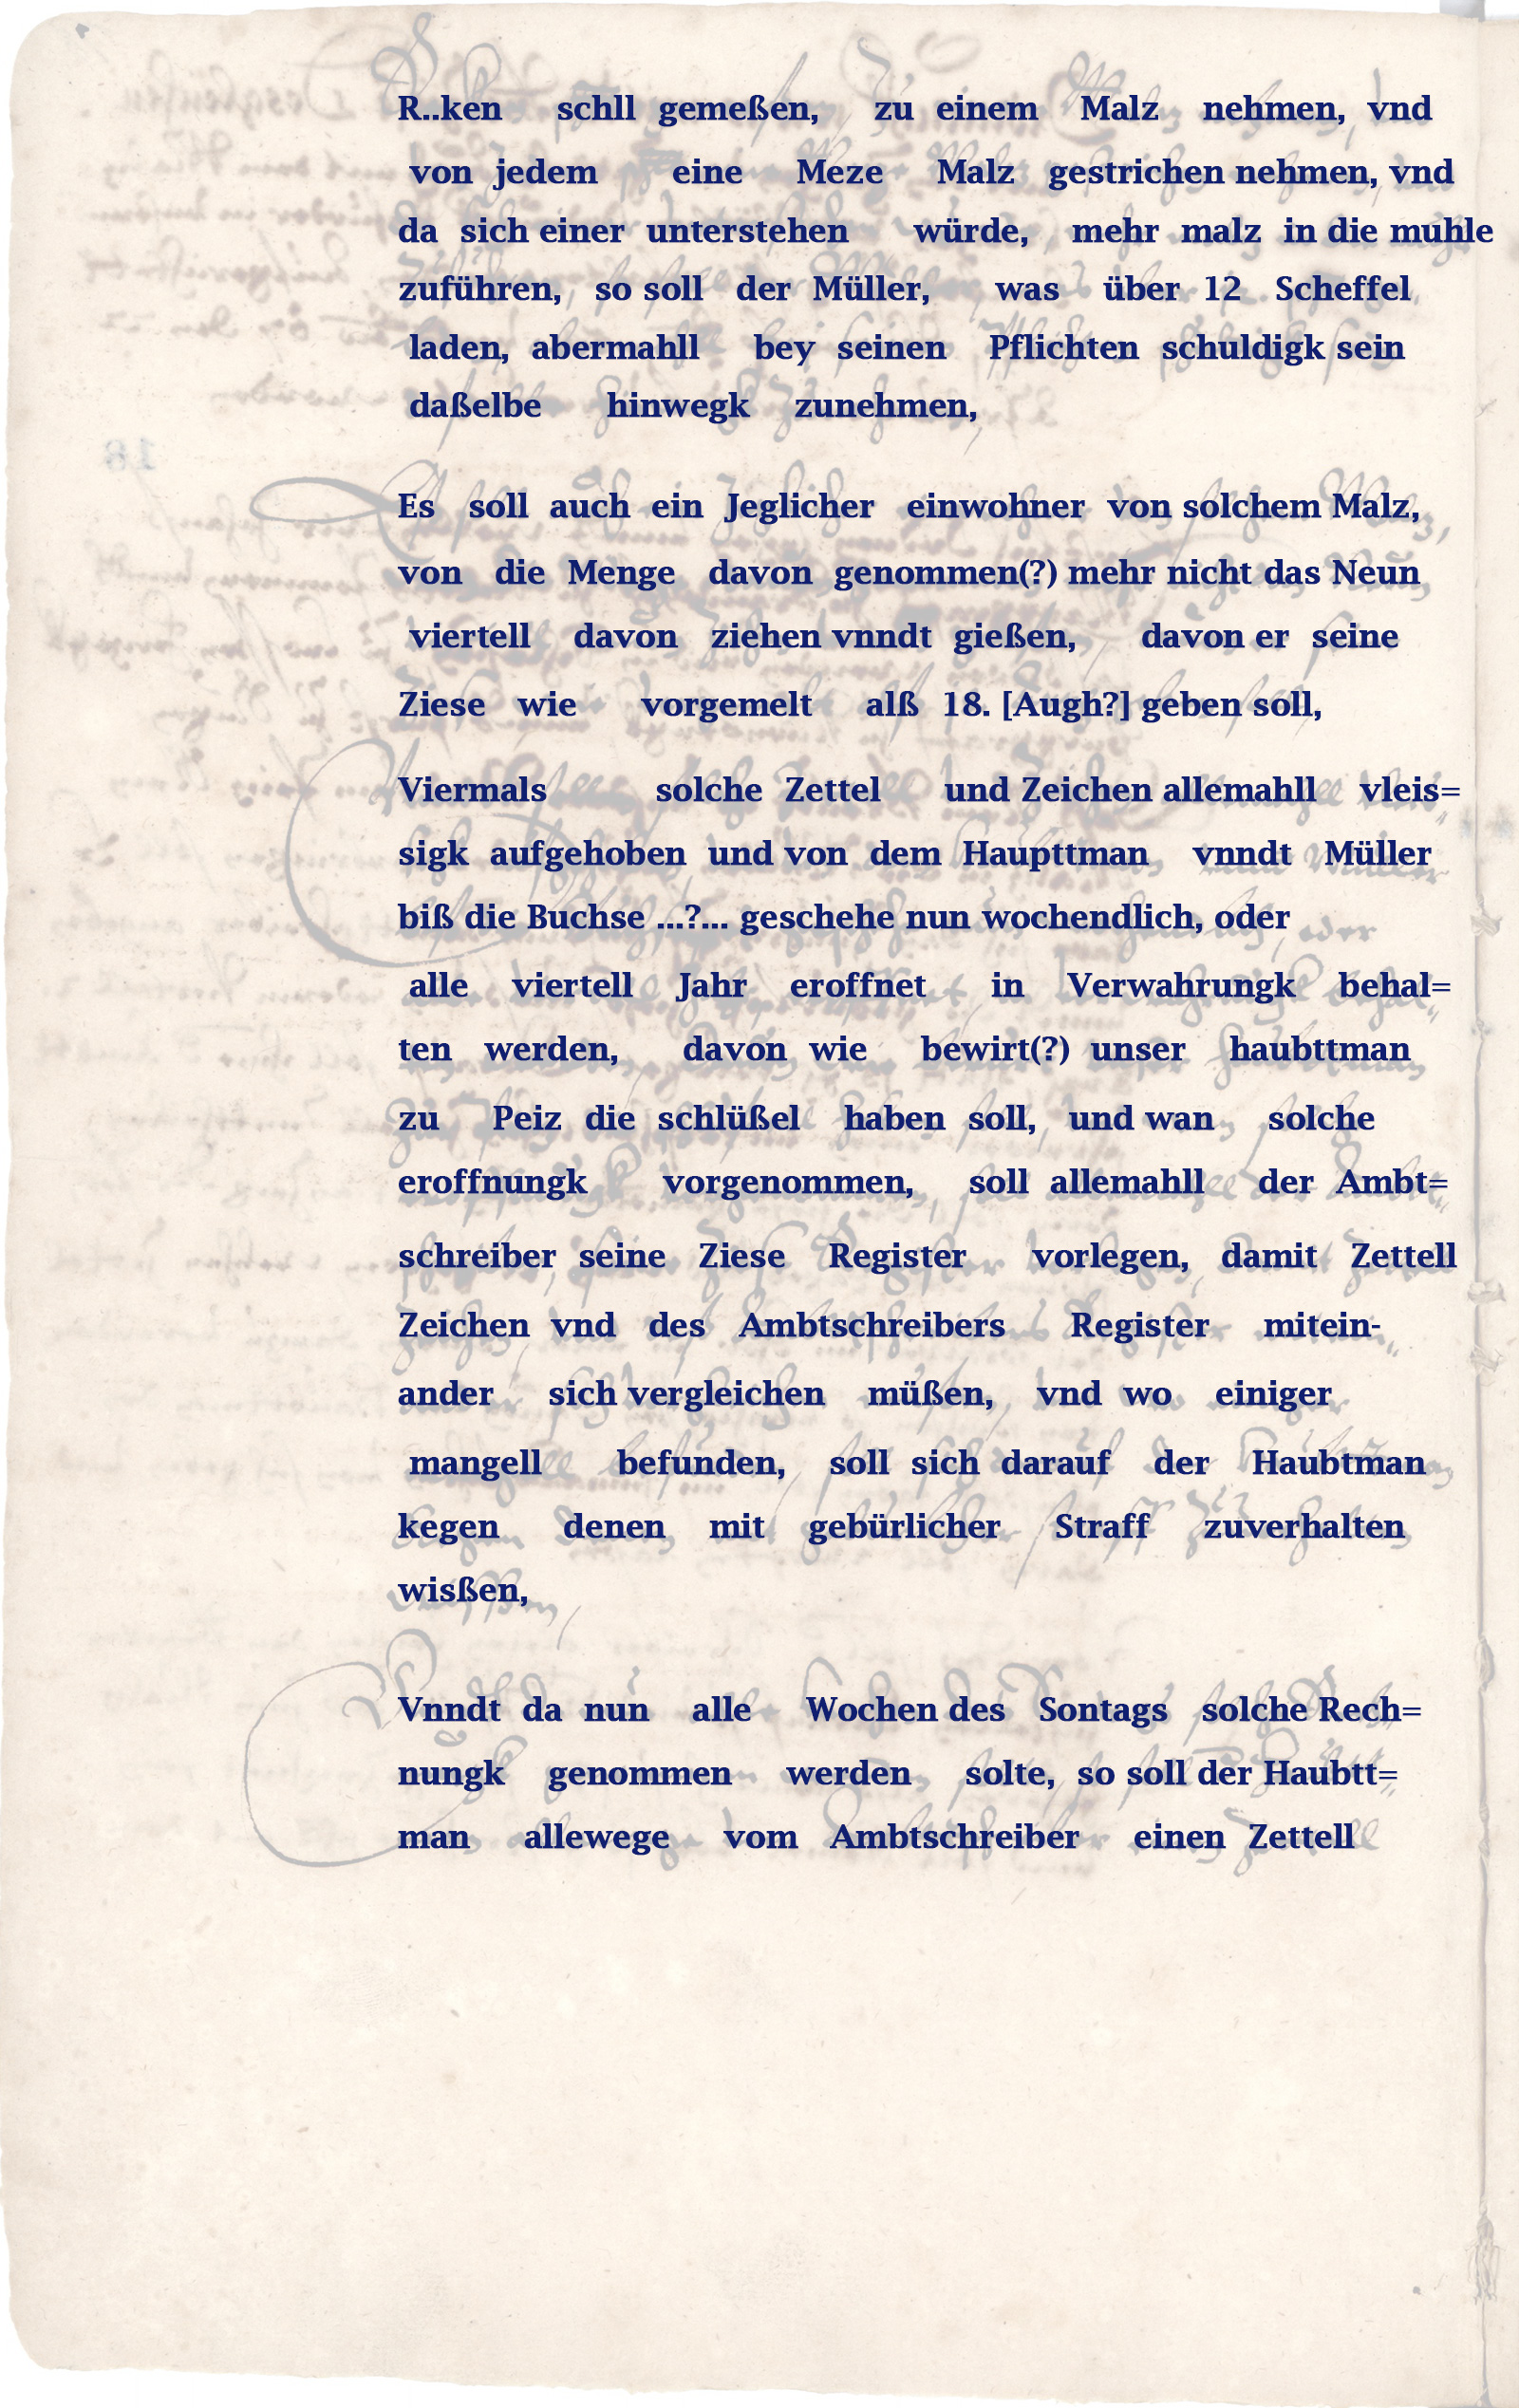 R..ken schll gemeßen, zu einem Malz nehmen, vnd
von jedem eine Meze Malz gestrichen nehmen, vnd
da sich einer unterstehen würde, mehr malz in die muhle
zuführen, so soll der Müller, was über 12 Scheffel
laden, abermahll bey seinen Pflichten schuldigk sein
daßelbe hinwegk zunehmen,
Es soll auch ein Jeglicher einwohner von solchem Malz,
von die Menge davon genommen(?) mehr nicht das Neun
viertell davon ziehen vnndt gießen, davon er seine
Ziese wie vorgemelt alß 18. [Augh?] geben soll,
Viermals solche Zettel und Zeichen allemahll vleis=
sigk aufgehoben und von dem Haupttman vnndt Müller
biß die Buchse ...?... geschehe nun wochendlich, oder
alle viertell Jahr eroffnet in Verwahrungk behal=
ten werden, davon wie bewirt(?) unser haubttman
zu Peiz die schlüßel haben soll, und wan solche
eroffnungk vorgenommen, soll allemahll der Ambt=
schreiber seine Ziese Register vorlegen, damit Zettell
Zeichen vnd des Ambtschreibers Register mitein-
ander sich vergleichen müßen, vnd wo einiger
mangell befunden, soll sich darauf der Haubtman
kegen denen mit gebürlicher Straff zuverhalten
wisßen,
Vnndt da nun alle Wochen des Sontags solche Rech=
nungk genommen werden solte, so soll der Haubtt=
man allewege vom Ambtschreiber einen Zettell